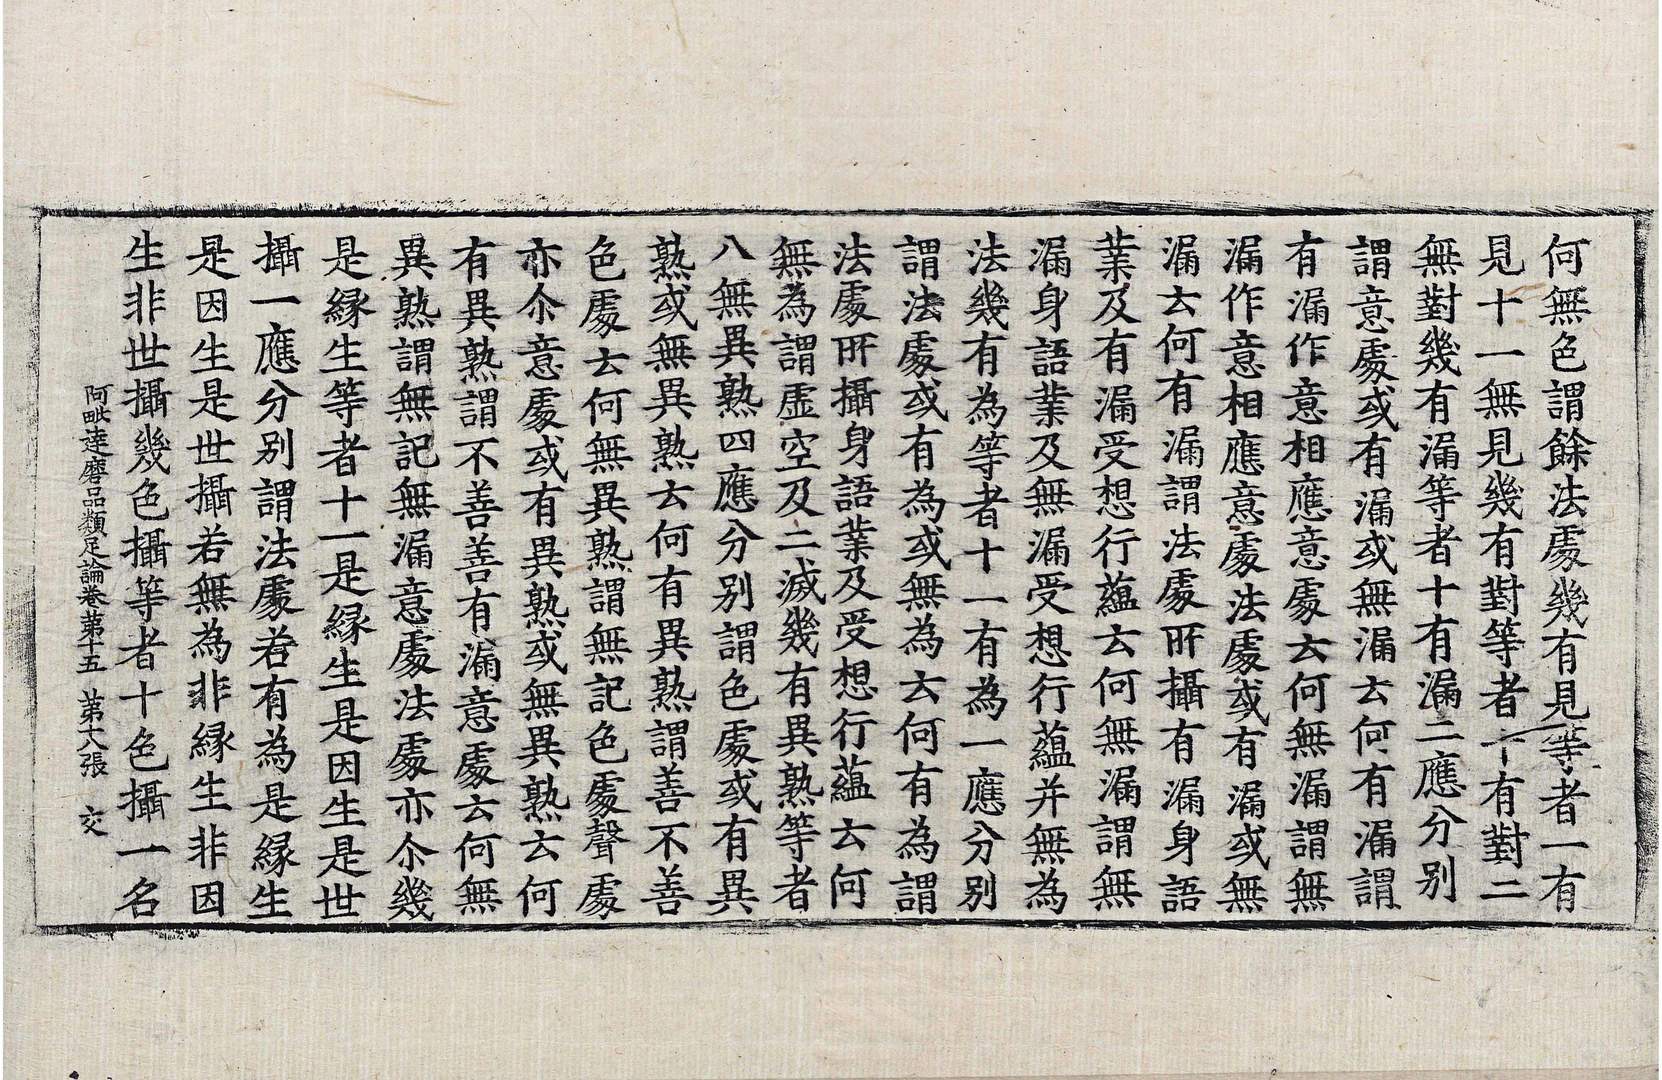 何無色謂餘法處幾有見等者一有
見十一無見幾有對等者十有對二
無對幾有漏等者十有漏二應分别
謂意處或有漏或無漏云何有漏謂
有漏作意相應意處云何無漏謂無
漏作意相應意處法處或有漏或無
漏云何有漏謂法處所攝有漏身語
業及有漏受想行蘊云何無漏謂無
漏身語業及無漏受想行蘊并無為
法幾有為等者十一有為一應分别
謂法處或有為或無為云何有為謂
法處所攝身語業及受想行蘊云何
無為謂虛空及二滅幾有異熟等者
八無異熟四應分别謂色處或有異
熟或無異熟云何有異熟謂善不善
色處云何無異熟謂無記色處聲處
亦尒意處或有異熟或無異熟云何
有異熟謂不善善有漏意處云何無
異熟謂無記無漏意處法處亦尒幾
是緣生等者十一是緣生是因生是世
攝一應分别謂法處若有為是緣生
是因生是世攝若無為非緣生非因
生非世攝幾色攝等者十色攝一名
阿毗達磨品類足論卷苐十五 苐十八張 交